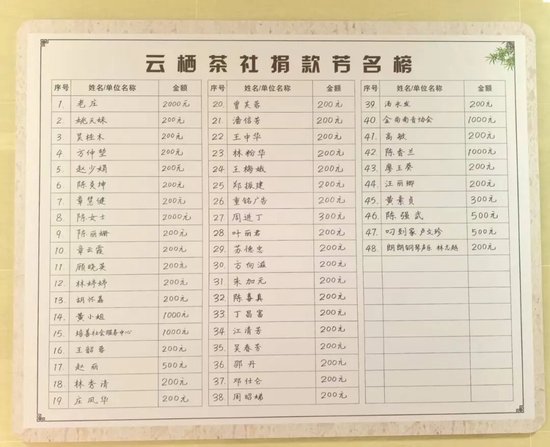 云栖茶社捐款芳名榜
序号 姓名/单位名称 金额
1 老庄 2000元
2 姚天妹 200元
3 吴桂木 200元
4 方仲堃 200元
5 赵少娟 200元
6 陈贞坤 200元
7 章慧健 200元
8 陈女士 2000元
9 陈丽娜 200元
10 章云霞 200元
11 顾晓英 200元
12 林婷婷 200元
13. 胡怀嘉 200元
14. 黄小姐 1000元
15. 培善社会服务中心 1000元
16 王韶蓉 200元
17 赵丽 500元
18 林秀清 200元
19. 庄凤华 200元
序号 姓名/单位名称 金额
20. 曾芙蓉 200元
21 潘信芳 200元
22 王中华 200元
23 林粉华 200元
24 王梅娥 200元
25 郑振建 200元
26 重铭广告 200元
27 周进丁 300元
28 叶丽君 200元
29. 苏德忠 200元
30. 方向滋 200元
31 朱加元 200元
32. 陈喜真 200元
33. 丁昌富 200元
34. 江清芳 200元
35. 吴春芳 200元
36. 邵丹 200元
37. 邓仕仑 200元
38. 周昭娣 200元
序号 姓名/单位名称 金额
39. 汤永发 200元
40 金尚南音协会 1000元
41. 高敏 200元
42. 陈香兰 1000元
43. 廖玉葵 200元
44 汪丽卿 200元
45. 黄素贞 300元
46. 陈强武 500元
47. 叼到家 卢文珍 500元
48. 朗朗钢琴声乐 林志超 200元